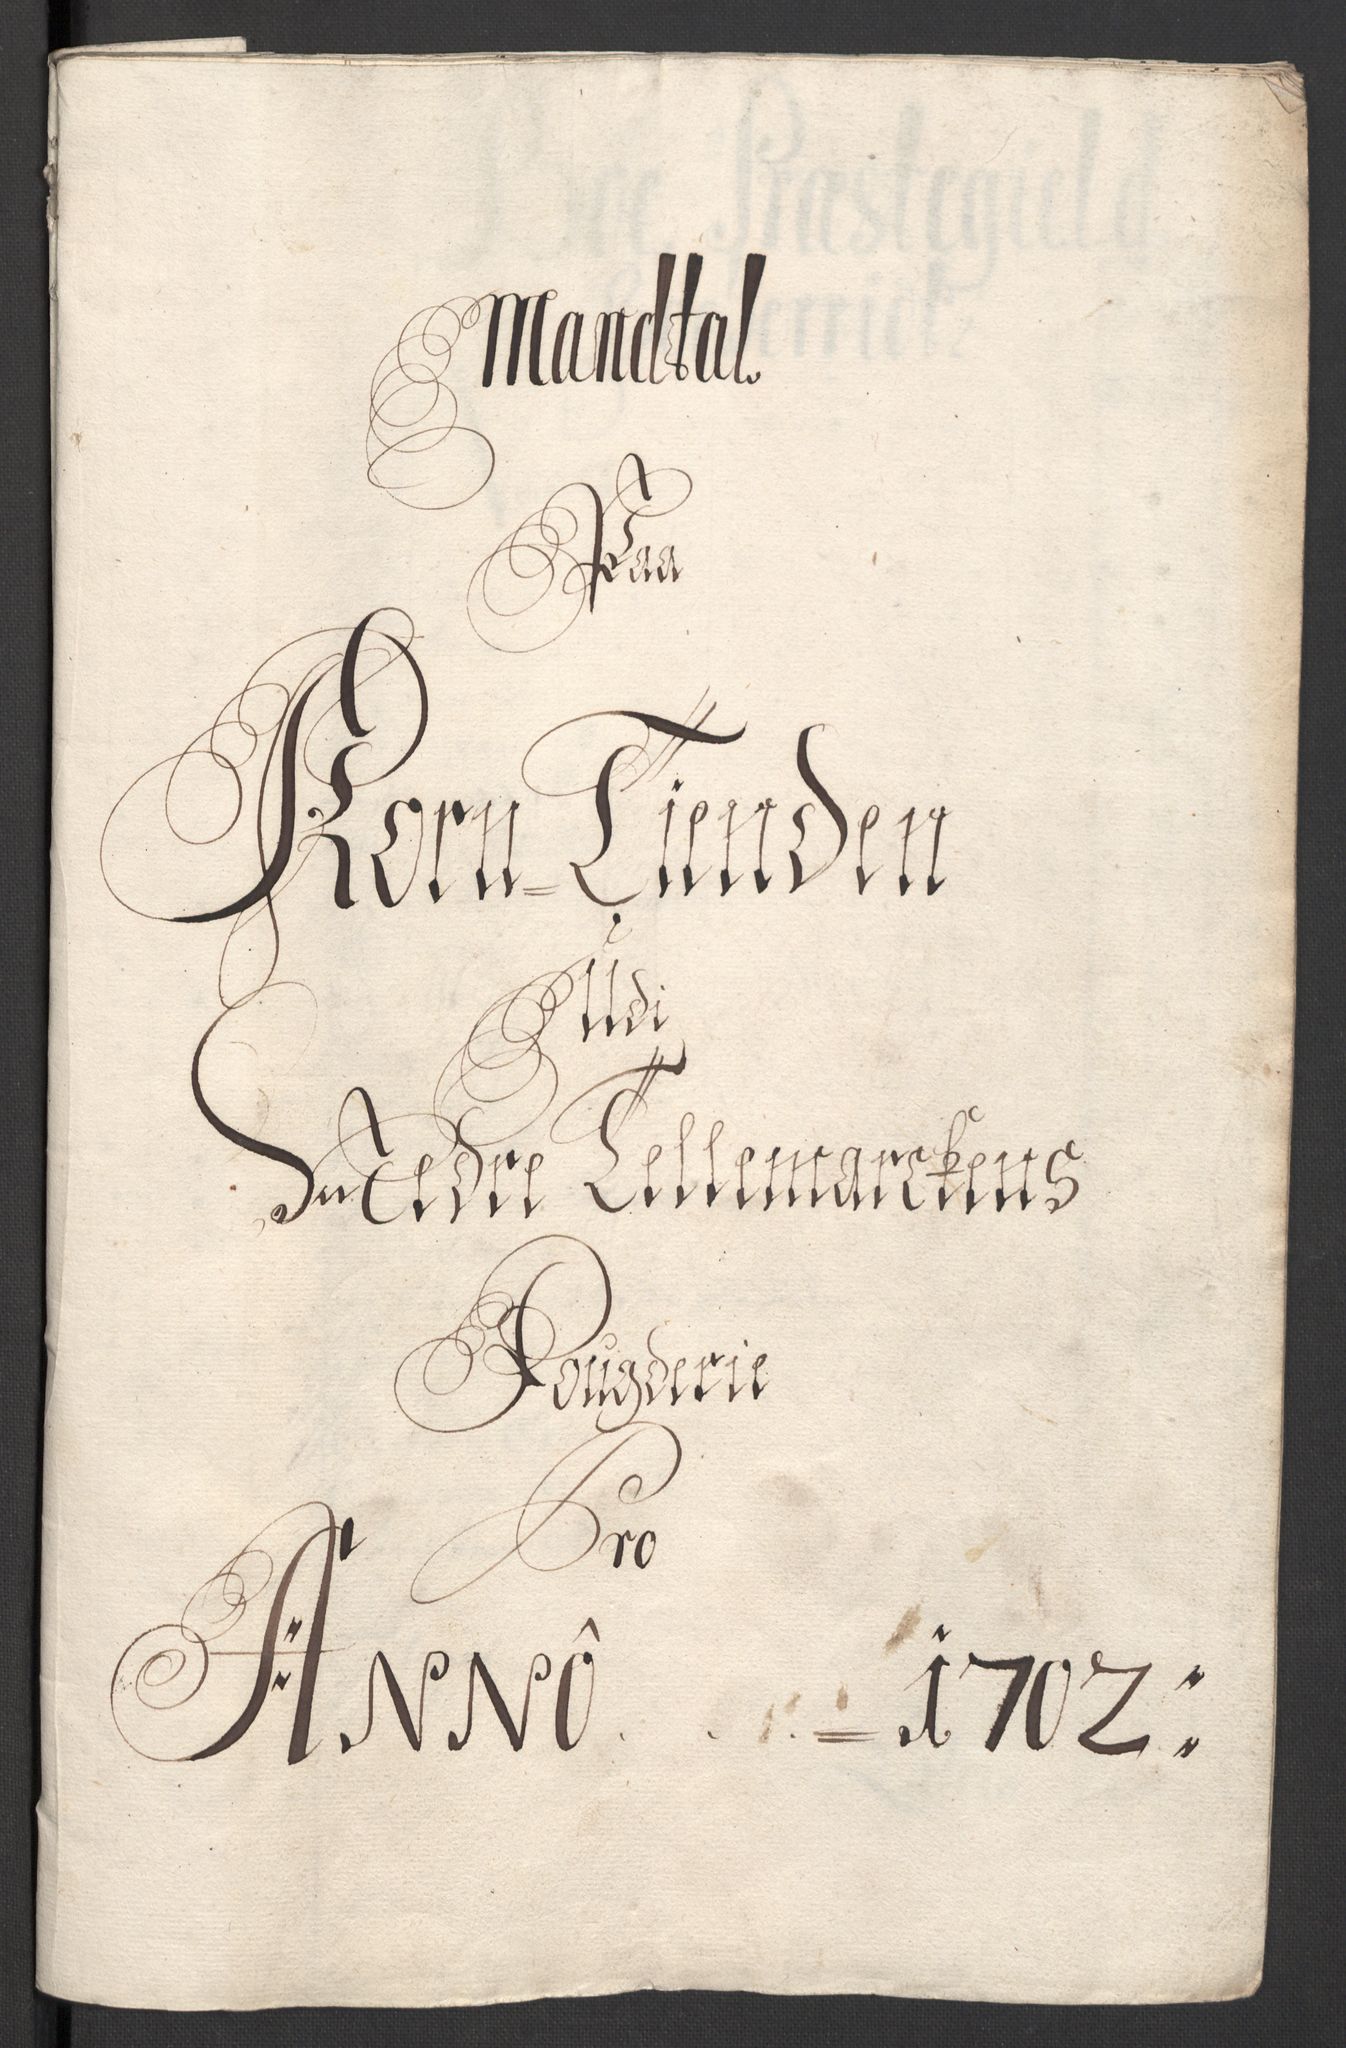 Mandtal
Paa
Korn-Tienden
Udi
Nedre Tellemarckens
Fougderie
Pro
ANNÔ = 1702: